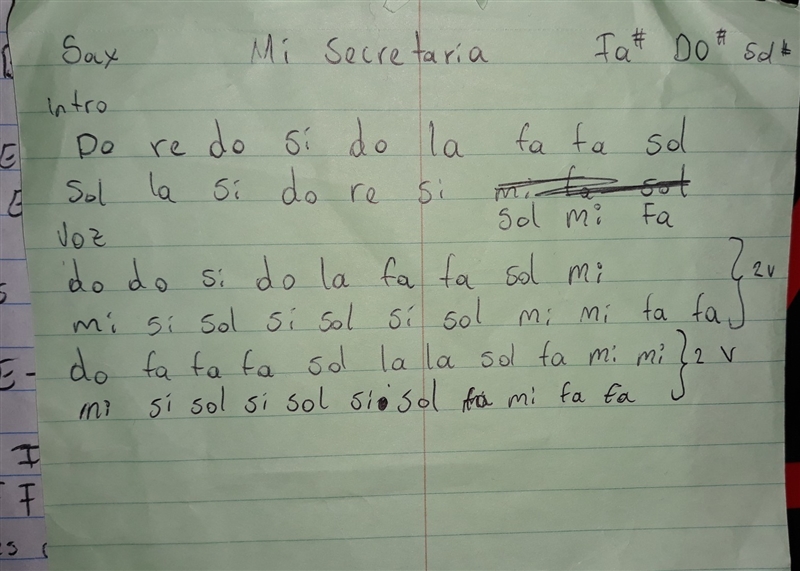 Sax Mi Secretaria Fa# DO# Sol#
intro
Do re do si do la fa fa sol
Sol la si do re si mi fa sol
sol mi Fa
Voz
do do si do la fa fa sol mi } 2v
mi si sol si sol si sol mi mi fa fa
do fa fa fa sol la la sol fa mi mi } 2 v
mi si sol si sol si sol fa mi fa fa